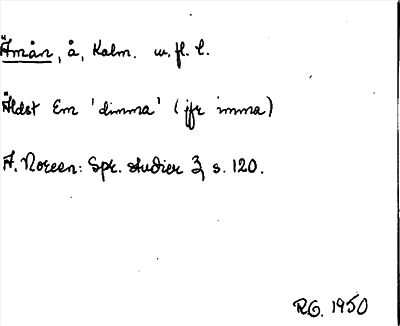 Ämån, å, Kalm. w. fl. l.
Äldst Em 'dimma' (jfr imma)
A. Noreen: Spr. studier 3, s. 120.
RG. 1950